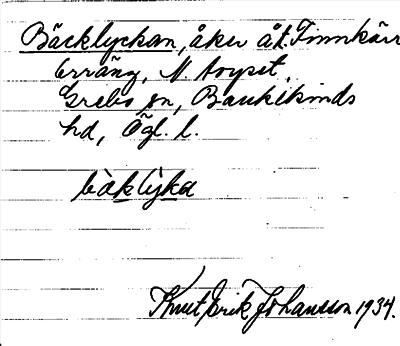 Bäcklyckan, åker åt Finnkärr
N.
Grebo sn, Bankekinds
hd, Ögl. l.
bàklỳka
Knut Erik Johansson 1934.